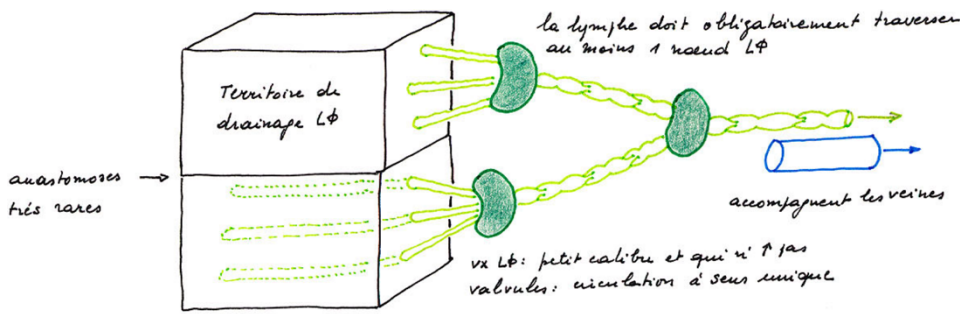 la lymphe doit obligatoirement traverser
au moins 1 nœud LΦ
Territoire de
drainage LΦ
anastomoses
trés rares
accompagnent les veines
vx LΦ: petit calibre et qui n'↑ pas
valvules: circulation à sens unique